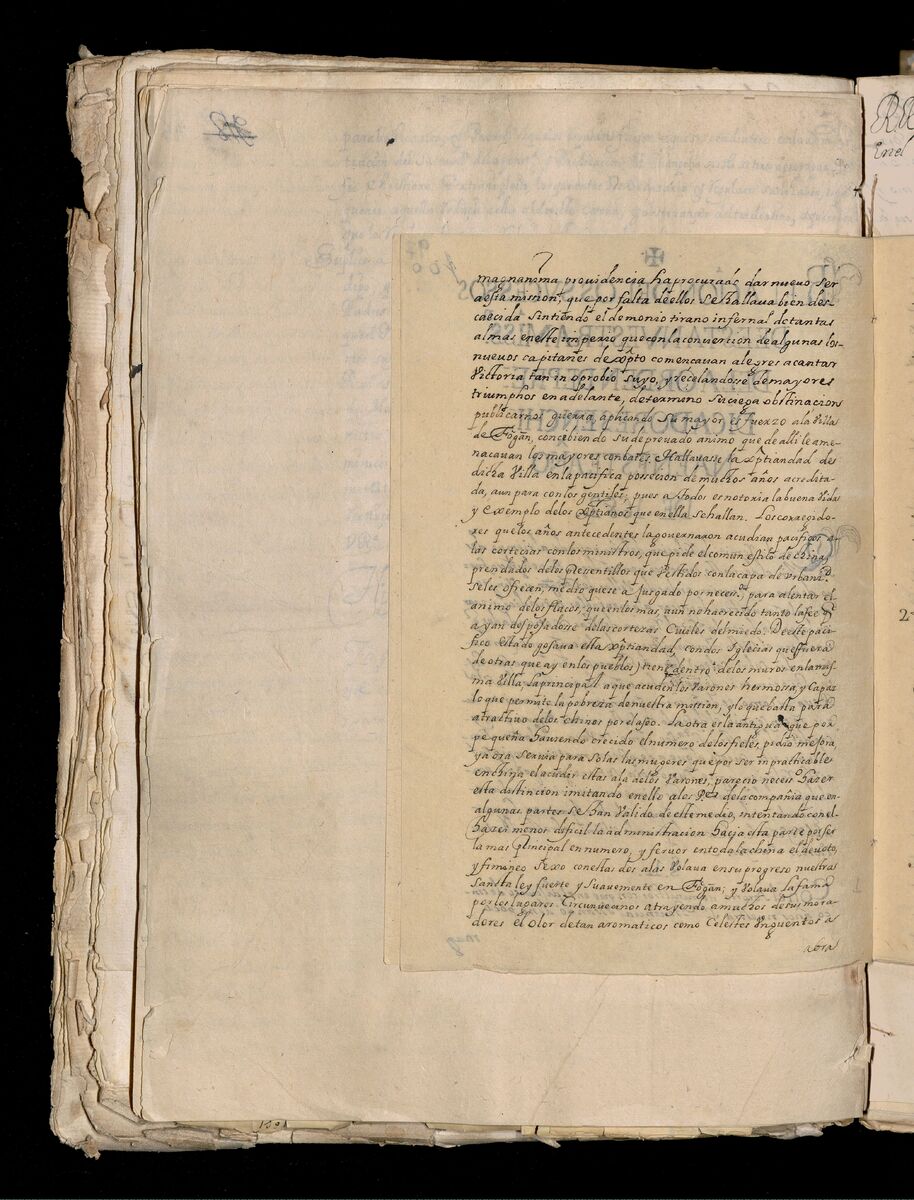 magnanima providencia ha procurado dar nuevo ser
a esta mission, que por falta de ellos se hallava bien des-
caecida sintiendo el demonio tirano infernal de tantas
almas en este imperio que con la convercion de algunas los
nuevos capitanes de xpto comencavan alegres a cantar
Victoria tan in oprobio suyo, y recelandosse de mayores
triumphos en adelante, determino su ciega obstinacion
publicarnos guerra, aplicando su mayor esfuerzo a la Villa
de Fogan, concibiendo su depravado animo que de alli le ame-
nacavan los mayores conbates. Hallavase la xptiandad de
dicha Villa en la pacifica posecion de muchos años acredita-
da, aun para con los gentiles; pues a todos es notoria la buena Vida
y Exemplo de los xptianos que en ella se hallan. Los coregido-
res que los años antecedentes la governaron acudian pacificos a
las cortecias con los ministros, que pide el comun estilo de China
prendados de los Presentillos que Vestidos con la capa de vrbani.d
se les ofrecen, medio que se a jusgado por neces.o para alentar el
animo de los flacos, que en los mas, aun no ha crecido tanto la fee q
a yan despojadosse de las cortezas Civiles del miedo. De este paci-
fico estado gosava esta xptiandad, con dos Iglecias que (fuera
de otras que ay en los pueblos) tiene dentro de los muros en la mis-
ma Villa, la principal a que acuden los Varones hermosa, y Capaz
lo que permite la pobreza de nuestra mission, y lo que basta para
atractivo de los chinos por el aseo. La otra es la antigua que por
pequeña haviendo crecido el numero de los fieles, pidio mejora,
y aora servia para solas las mugeres que por ser inpracticable
en china el acudir estas a la de los Varones, parecio neces.o hazer
esta distincion imitando en ello a los P.es de la compañia que en
algunas partes se han Valido de este medio, intentando con el
hazer menor dificil la administracion hacia esta parte por ser
la mas principal en numero, y fervor en toda la china el devoto,
y fimineo sexo con estas dos alas Volava en su progreso nuestra
sancta ley fuerte y suavemente en Fogan; y Volava la fama
por los lugares Circunvecinos atrayendo a muchos de sus mora-
dores el olor de tan aromaticos como Celestes Vnguentos a
aora